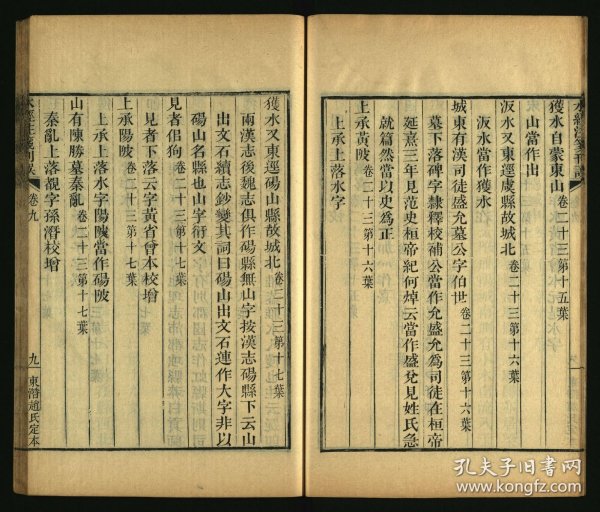 獲水自蒙東山卷二十三第十五葉
山當作出
汳水又東逕虞縣故城北卷二十三第十六葉
汳水當作獲水
城東有漢司徒盛允墓公字伯世卷二十三第十六葉
墓下落碑字隸釋校補公當作允盛允爲司徒在桓帝
延熹三年見范史桓帝紀何焯云當作盛兊見姓氏急
就篇然當以史爲正
上承黃陂卷二十三第十六葉
上承上落水字
獲水又東逕碭山縣故城北卷二十三第十七葉
兩漢志後魏志俱作碭縣無山字按漢志碭縣下云山
出文石續志鈔變其詞曰碭山出文石連作大字非以
碭山名縣也山字衍文
見者佀狗卷二十三第十七葉
見者下落云字黃省會本校增
上承陽陂卷二十三第十七葉
上承上落水字陽陂當作碭陂
山有陳勝墓秦亂卷二十三第十七葉
秦亂上落靚字孫潛校增
水經注箋刊誤 卷九
九 東潛趙氏定本
孔夫子旧书网
www.kongfz.com